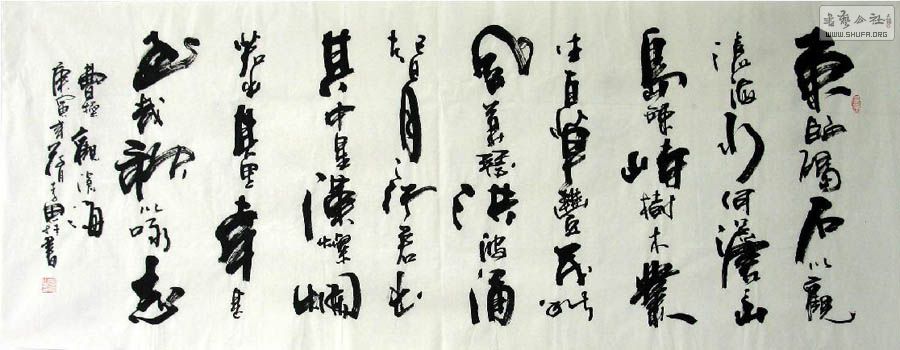 東臨碣石以觀
滄海水何澹澹山
島竦峙樹木叢
生百草豐茂秋
風蕭瑟洪波涌
起日月之行若出
其中星漢燦爛
若出其里幸甚
至哉歌以詠志
曹操觀滄海
庚寅 書
書藝公社
WWW.SHUFA.ORG